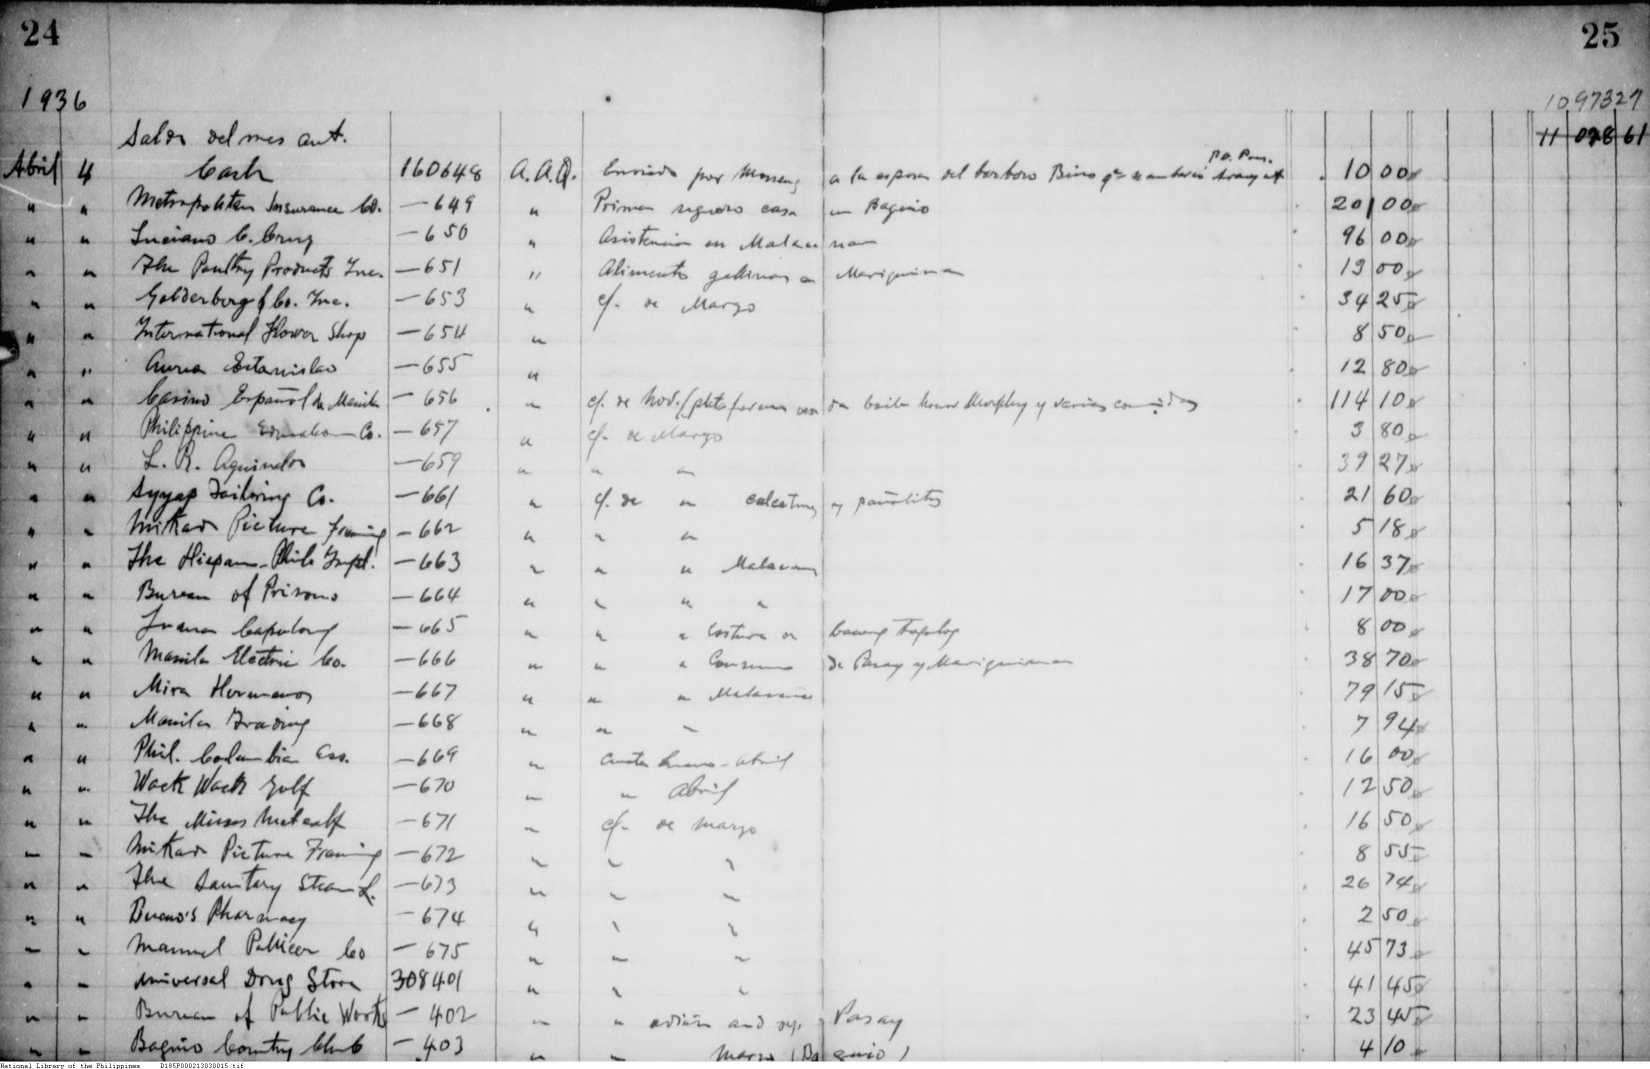 24 25
1936 10 973 27
Saldo del mes ant. 11 098 61
Abril 4 Cash 160648 A.A.Q. Enviado por a la esposa del barbero Bino 10 00
" " Metropolitan Insurance Co. — 649 " Primas seguro casa en Baguio 201 00
" " Luciano C. Cruz — 650 " Asistencia en Malacanan 96 00
" " The Poultry Products Inc. — 651 " Alimento gallinas en Mariquina 13 00
" " Golderberg & Co. Inc. — 653 " c/. de Marzo 34 25
" " International Flower Shop — 654 " 8 50
" " Aurea Estanislao — 655 " 12 80
" " Casino Español de Manila — 656 " c/. de Nov. (plataforma baile honor Murphy y varias comidas 114 10
" " Philippine Education Co. — 657 " c/. de Marzo 3 80
" " L. R. Aguinaldo — 659 " " " 39 27
" " Syyap Tailoring Co. — 661 " c/. de " calcetines y pañolitos 21 60
" " Mitkao Picture Framing — 662 " " " 5 18
" " The Hispano-Phil. Impt. — 663 " " " Malacanan 16 37
" " Bureau of Prisons — 664 " " " " 17 00
" " Juana Capulong — 665 " " " Costura en 8 00
" " Manila Electric Co. — 666 " " " Consumo de Pasay y Mariquina 38 70
" " Mira Hermanos — 667 " " " Malacanan 79 15
" " Manila Trading — 668 " " " 7 94
" " Phil. Columbian Ass. — 669 " Cuota Enero-Abril 16 00
" " Wack Wack Golf — 670 " " Abril 12 50
" " The Misses Metcalf — 671 " c/. de Marzo 16 50
" " Mitkao Picture Framing — 672 " " " 8 55
" " The Sanitary Steam L. — 673 " " " 26 74
" " Bueno's Pharmacy — 674 " " " 2 50
" " Manuel Pellicer Co — 675 " " " 45 73
" " Universal Drug Store 308401 " " " 41 45
" " Bureau of Public Works — 402 " " Pasay 23 45
" " Baguio Country Club — 403 " " Marzo (Baguio) 4 10
National Library of the Philippines D185P000213030015.tif